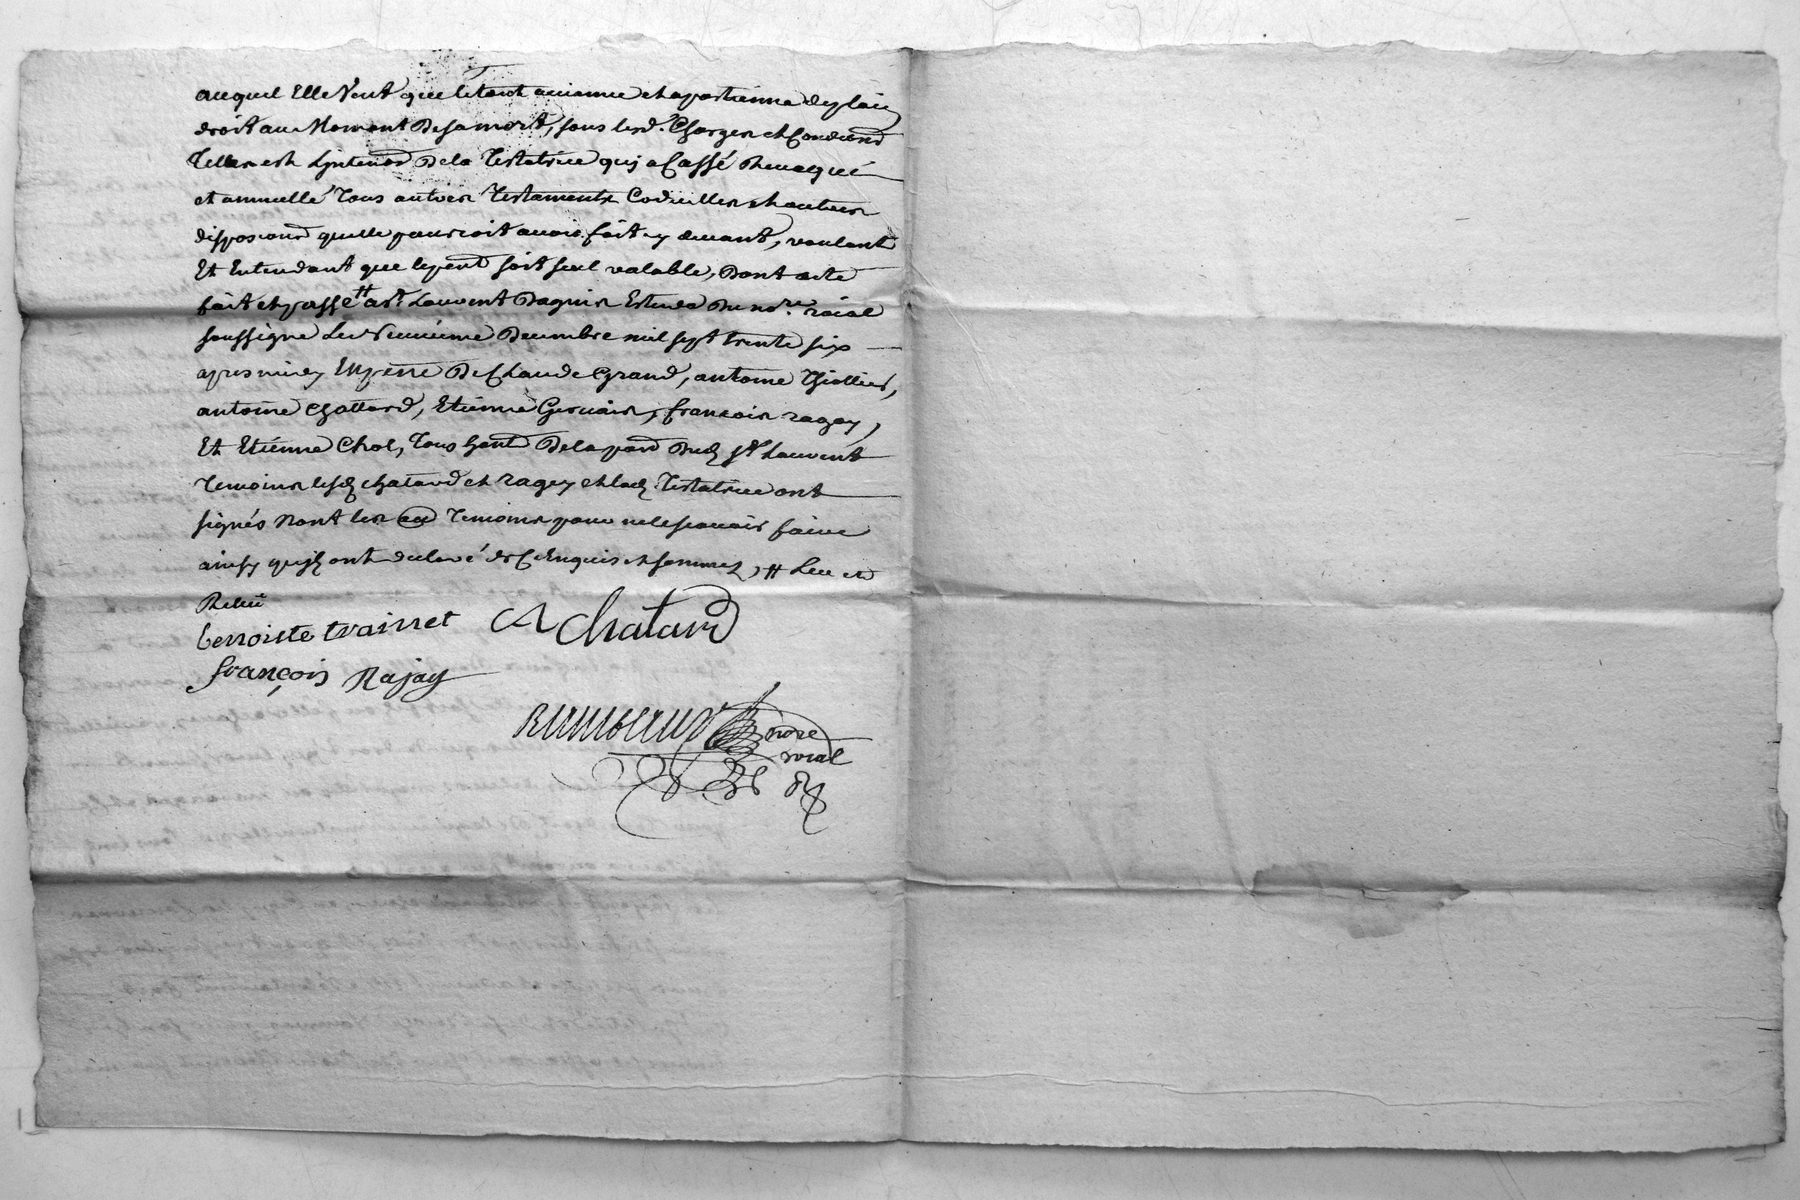 auquel Elle Veut que letout avienne et apartienne de plain
droit au Moment De sa mort, sous lesd. Charges et Conditions
Telle est Lintention De la Testatrice quy a Cassé Revoqué
et annullé Tous autres Testaments Codicilles et autres
dispositions quelle pourroit avoir fait cy devant, voulant
Et Entendant que le present soit seul valable, Dont acte
fait et passé # a st. Laurent Dagnin Estude Du nore. roial
soussigné Le Neuvieme Decembre mil sept trente six
apres midy En presence De Claude Grand, antoine Thiollier,
antoine Chattard, Etienne Gervais, francois ragey,
Et Etienne Chol, Tous habitants De la paroisse Dud. st Laurent
Temoins lesd. chatard et ragey et lad. Testatrice ont
signés Non les autres Temoins pour ne le scavoir faire
ainsy quils ont declaré de ce Enquis et sommés, # Leu et
Releu
benoiste trainet A Chatard
françois Rajay
nore
roial